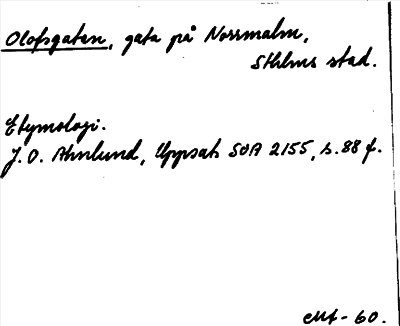 Olofsgatan, gata på Norrmalm,
Sthlms stad.
Etymologi.
J. O. Ahnlund, Uppsats SOA 2155, s. 88 f.
-60.